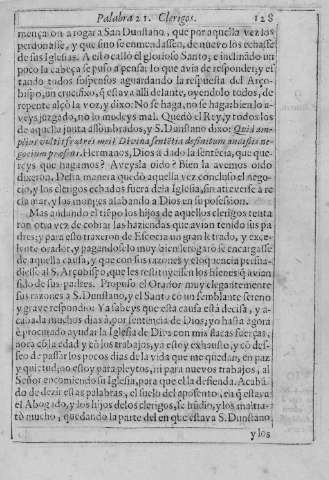 Palabra 21. Clerigos. 128
mençaron a rogar a San Dunstano, que por aquella vez los
perdonasse, y que sino se enmendassen, de nuevo los echasse
de sus Iglesias. A esto callò el glorioso Santo, e inclinãdo un
poco la cabeça se puso a pensar lo que avia de responder, y es
tando todos suspensos aguardando la respuesta del Arço-
bispo, un crucifixo, q̃ estava alli delante, oyendolo todos, de
repente alçò la voz, y dixo: No se haga, no se haga: bien lo a-
veys juzgado, no lo mudeys mal. Quedò el Rey, y todos los
de aquella junta assombrados, y S. Dunstano dixo: Quid am-
plius vultis fratres mei? Divina sentẽtia definitum audistis ne-
gocium præsens. Hermanos, Dios à dado la sentẽcia, que que-
reys que hagamos? Aveysla oido? Bien la avemos oido
dixeron. Desta manera quedò aquella vez concluso el nego-
cio, y los clerigos echados fuera dela Iglesia, sin atreverse a re
clamar, y los monges alabando a Dios en su possession.
Mas andando el tiẽpo los hijos de aquellos clerigos tenta
ron otra vez de cobrar las haziendas que avian tenido sus pa
dres; y para esto traxeron de Escocia un gran letrado, y exce-
lente orador, y pagandoselo muy bien le rogarõ se encargasse
de aquella causa, y que con sus razones y eloquencia persua-
diesse al S. Arçobispo, que les restituyessen los bienes q̃ avian
sido de sus padres. Propuso el Orador muy elegantemente
sus razones a S. Dunstano, y el Santo cõ un semblante sereno
y grave respondio: Ya sabeys que esta causa està decisa, y a-
cabada muchos dias à, por sentencia de Dios; yo hasta agora
è procurado ayudar la Iglesia de Dios con mis flacas fuerças,
aora cõ la edad y cõ los trabajos, ya estoy exhausto, y cõ des-
seo de passar los pocos dias de la vida que me quedan, en paz
y quietud; no estoy para pleytos, ni para nuevos trabajos, al
Señor encomiendo su Iglesia, para que el la defienda. Acabã-
do de dezir estas palabras, el suelo del aposento, en q̃ estava
el Abogado, y los hijos delos clerigos, se hũdio, y los maltra-
tò mucho, quedando la parte del en que estava S. Dunstano,
y los